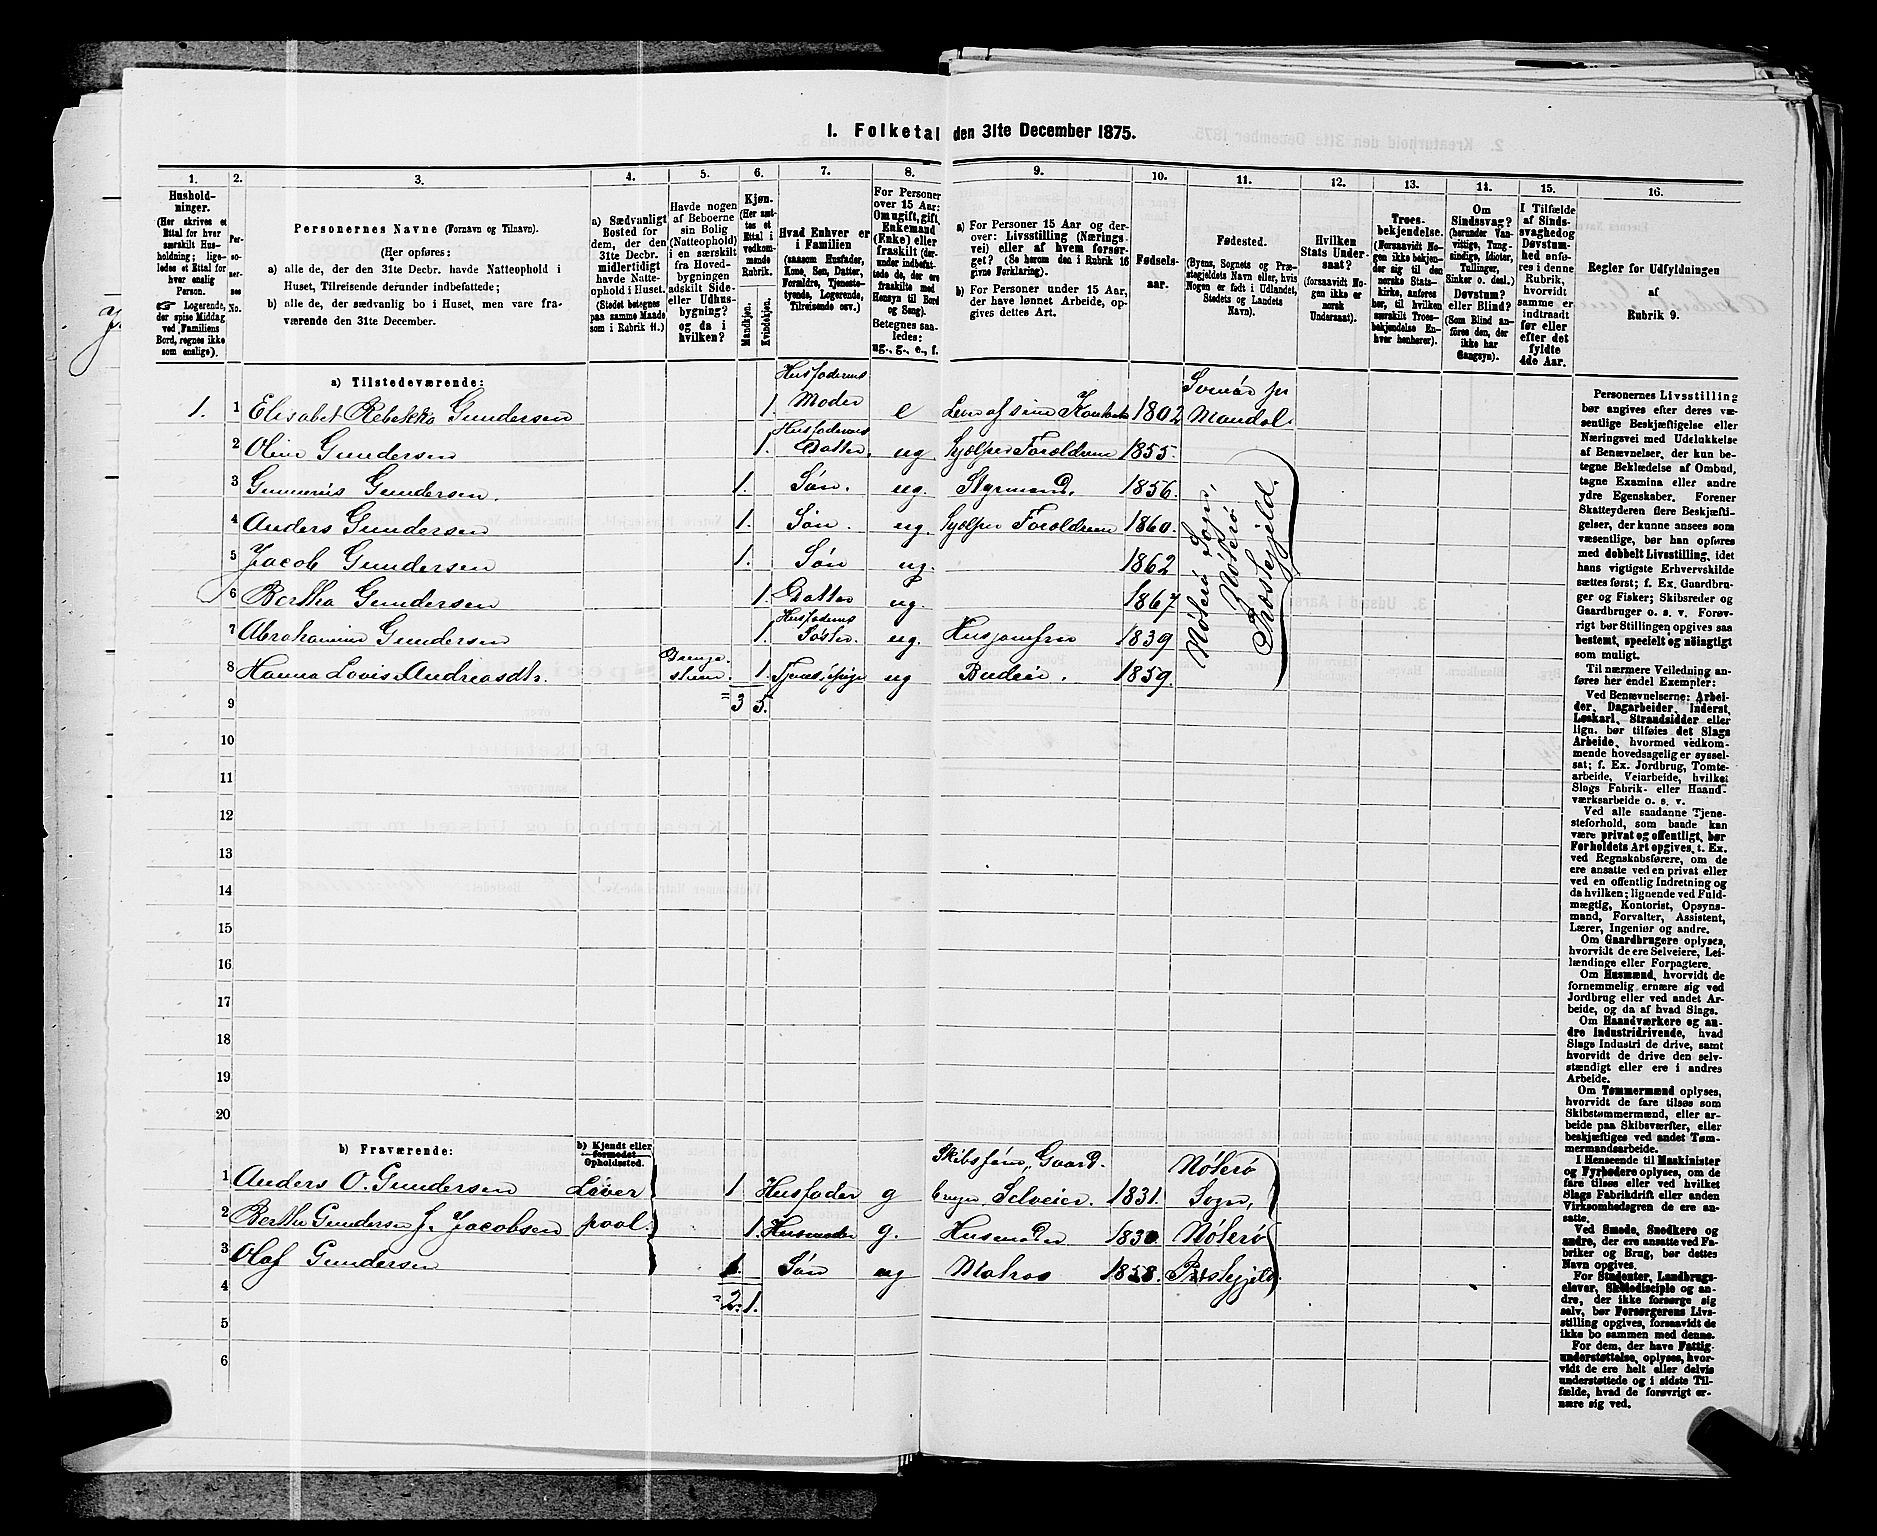 1. Folketal den 31te December 1875.
1.
Hushold-
ninger.
(Her skrives et
Ettal for hver
særskilt Hus-
holdning; lige-
ledes et Ettal for
hver enslig
Person.
☞ Logerende,
der spise Middag
ved Familiens
Bord, regnes ikke
som enslige).
2.
Per-
so-
ner-
nes
No.
3.
Personernes Navne (Fornavn og Tilnavn).
(Her opføres:
a) alle de, der den 31te Decbr. havde Natteophold i
Huset, Tilreisende derunder indbefattede;
b) alle de, der sædvanlig bo i Huset, men vare fra-
værende den 31te December.
4.
a) Sædvanligt
Bosted for
dem, der den
31te Decbr.
midlertidigt
havde Natte-
ophold i Huset.
(Stedet betegnes
paa samme Maade
som i Rubrik 11.)
5.
Havde nogen
af Beboerne
sin Bolig
(Natteophold)
i en særskilt
fra Hoved-
bygningen
adskilt Side-
eller Udhus-
bygning?
og da i
hvilken?
6.
Kjøn.
(Her sæt-
tes et
Ettal i
vedkom-
mende
Rubrik.
Mandkjøn.
Kvindekjøn.
7.
Hvad Enhver er
i Familien
(saasom Husfader,
Kone, Søn, Datter,
Forældre, Tjeneste-
tyende, Logerende,
Tilreisende osv.)
8.
For Personer
over 15 Aar:
Om ugift, gift,
Enkemand
(Enke) eller
fraskilt (der-
under indbefat-
tede de, der ere
fraskilte med
Hensyn til Bord
og Seng).
Betegnes saa-
ledes:
ug., g., e., f.
9.
a) For Personer 15 Aar og der-
over: Livsstilling (Nærings-
vei) eller af hvem forsør-
get? (Se herom den i Rubrik 16
givne Forklaring).
b) For Personer under 15 Aar,
der have lønnet Arbeide, op-
gives dettes Art.
10.
Fødsels-
aar.
11.
Fødested.
(Byens, Sognets og Præ-
stegjeldets Navn eller, hvis
Nogen er født i Udlandet,
Stedets og Landets
Navn).
12.
Hvilken
Stats Under-
saat?
(forsaavidt No-
gen ikke er
norsk
Undersaat).
13.
Troes-
bekjendelse.
(Forsaavidt No-
gen ikke bekjen-
der sig til den
norske Stats-
kirke, anføres
her, til hvilken
særskilt Troes-
bekjendelse En-
hver henhører).
14.
Om
Sindssvag?
(herunder Van-
vittige, Tung-
sindige, Idioter,
Tullinger,
Sinker o. desl.)
Døvstum?
eller Blind?
(Som Blind an-
føres den, der
ikke har
Gangsyn).
15.
I Tilfælde
af Sinds-
svaghed og
Døvstum-
hed anfø-
res i denne
Rubrik,
hvorvidt
samme er
indtraadt
før eller
efter det
fyldte
4de Aar.
16.
Regler for Udfyldningen
af
Rubrik 9.
a) Tilstedeværende:
1. 1 Elisabet Rebekka Gundersen 1. Husfaderens Moder e Lever af sine Kontanter 1802 Mandal
2 Oline Gundersen 1. Husfaderens Datter. ug Hjælper Forældrene 1855.
3 Gunnerius Gundersen. 1. Søn. ug. Styrmand. 1856.
4 Anders Gundersen 1. Søn. ug. Hjælper Forældrene 1860.
5 Jacob Gundersen 1. Søn ug. 1862
6 Bertha Gundersen 1. Datter ug. 1867
7 Abrahamine Gundersen 1. Husfaderens Søster. ug. Husjomfru 1839
8 Hanna Lovise Andreasdtr. 1. Tjenestepige ug Budeie. 1859.
Nøterø Sogn,
Nøterø
Præstegjeld.
9 = 3 5.
10
11
12
13
14
15
16
17
18
19
20
b) Fraværende:
b) Kjendt eller
formodet
Opholdssted.
1 Anders O. Gundersen Liver 1 Husfader g Skibsfører, Gaardbruger, Selveier. 1831. Nøterø Sogn,
2 Bertha Gundersen f. Jacobsen pool. 1. Husmoder g. Husmoder 1830 Nøterø
3 Olaf Gundersen 1. Søn ug Matros 1858. Præstegjeld.
4 = 2. 1.
5
6
Personernes Livsstilling
bør angives efter deres væ-
sentlige Beskjæftigelse eller
Næringsvei med Udelukkelse
af Benævnelser, der kun be-
tegne Beklædelse af Ombud,
tagne Examina eller andre
ydre Egenskaber. Forener
Skatteyderen flere Beskjæfti-
gelser, der kunne ansees som
væsentlige, bør han opføres
med dobbelt Livsstilling, idet
hans vigtigste Erhvervskilde
sættes først; f. Ex. Gaardbru-
ger og Fisker; Skibsreder og
Gaardbruger o. s. v. Forøv-
rigt bør Stillingen opgives saa
bestemt, specielt og nøiagtigt
som muligt.
Til nærmere Veiledning an-
føres her endel Exempler:
Ved Benævnelserne: Arbei-
der, Dagarbeider, Inderst,
Løskarl, Strandsidder eller
lign. bør tilføies det Slags
Arbeide, hvormed vedkom-
mende hovedsagelig er syssel-
sat; f. Ex. Jordbrug, Tomte-
arbeide, Veiarbeide, hvilket
Slags Fabrik- eller Haand-
værksarbeide o. s. v.
Ved alle saadanne Tjene-
steforhold, som baade kan
være privat og offentligt, bør
Forholdets Art opgives, t. Ex.
ved Regnskabsførere, om de
ere ansatte ved en privat eller
ved en offentlig Indretning og
da hvilken; lignende ved Fuld-
mægtig, Kontorist, Opsyns-
mand, Forvalter, Assistent,
Lærer, Ingeniør og andre.
Om Gaardbrugere oplyses,
hvorvidt de ere Selveiere, Lei-
lændinge eller Forpagtere.
Om Husmænd, hvorvidt de
fornemmelig ernære sig ved
Jordbrug eller ved andet Ar-
beide, og da af hvad Slags.
Om Haandværkere og an-
dre Industridrivende, hvad
Slags Industri de drive, samt
hvorvidt de drive den selv-
stændigt eller ere i andres
Arbeide.
Om Tømmermænd oplyses,
hvorvidt de fare tilsøs som
Skibstømmermænd, eller ar-
beide paa Skibsværfter, eller
beskjæftiges ved andet Tøm-
mermandsarbeide.
I Henseende til Maskinister
og Fyrbødere oplyses, om de
fare tilsøs eller ved hvilket
Slags Fabrikdrift eller anden
Virksomhedsgren de ere an-
satte.
Ved Smede, Snedkere og
andre, der ere ansatte ved Fa-
briker og Brug, bør dettes
Navn opgives.
For Studenter, Landbrugs-
elever, Skoledisciple og an-
dre, der ikke forsørge sig
selv, bør Forsørgerens Livs-
stilling opgives, forsaavidt de
ikke bo sammen med denne.
For dem, der have Fattig-
understøttelse, oplyses, hvor-
vidt de ere helt eller delvis
understøttede og i sidste Til-
fælde, hvad de forøvrigt er-
nære sig ved.